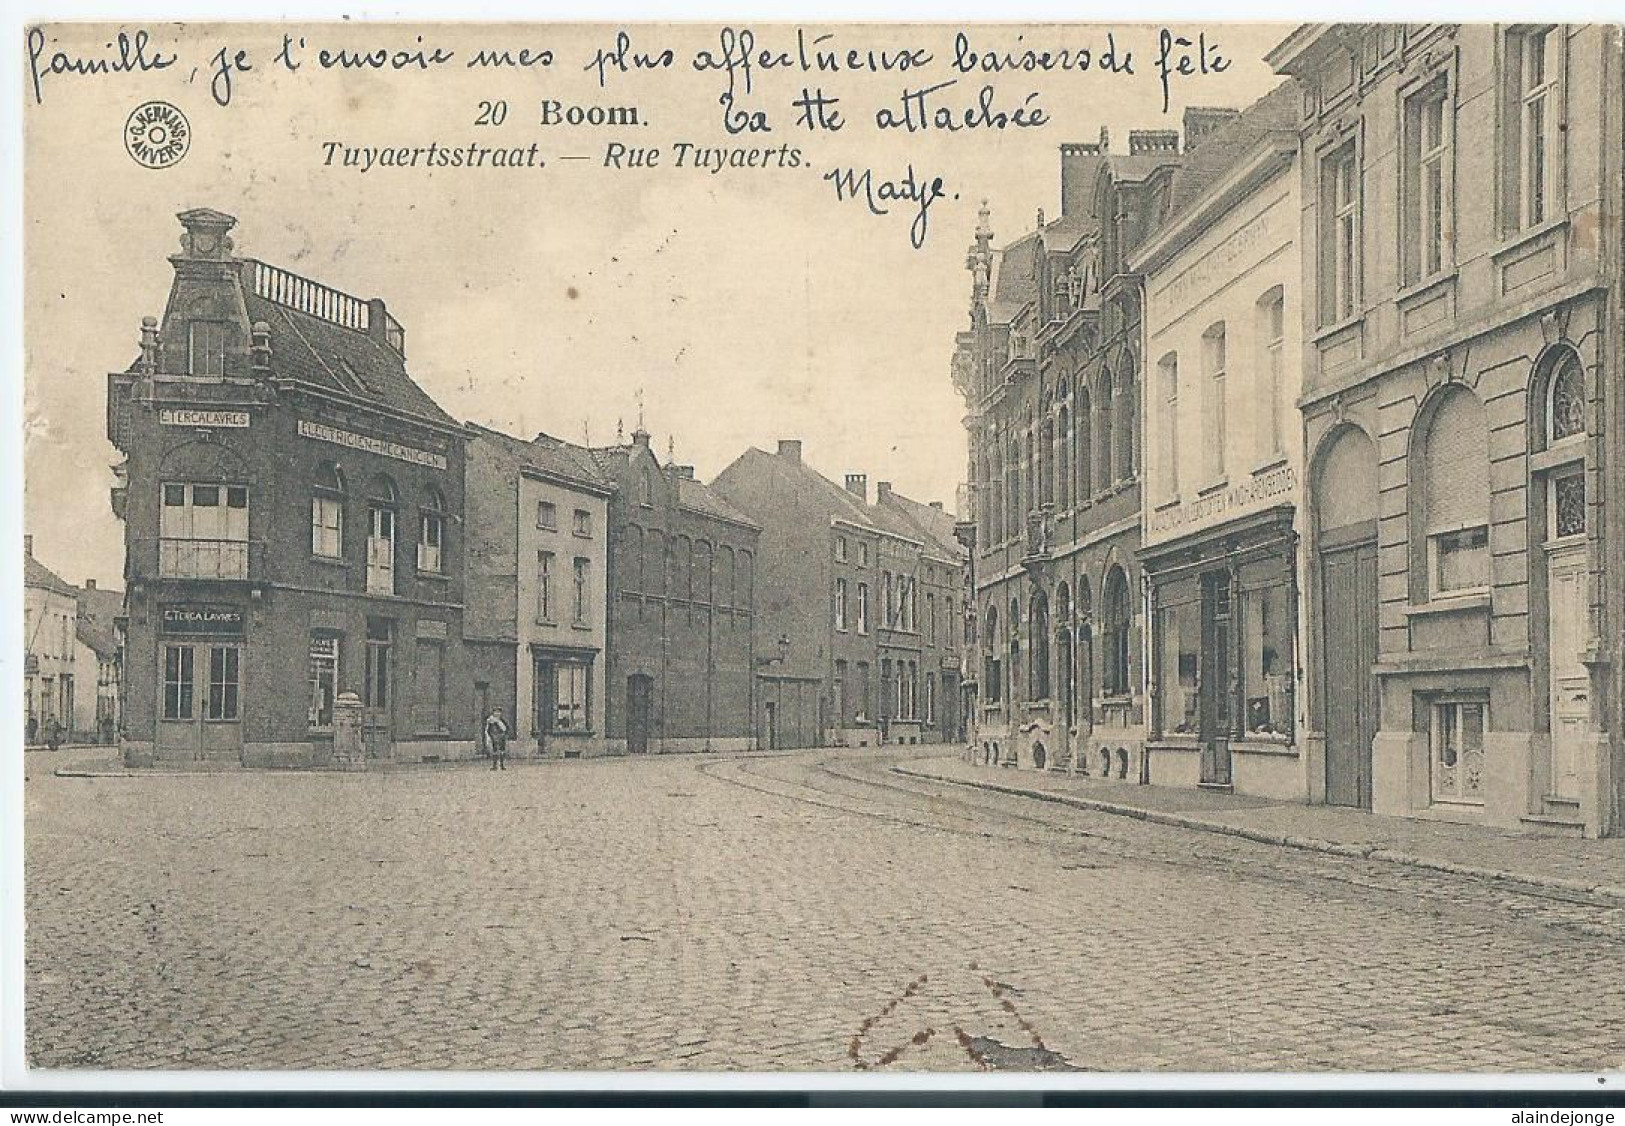 famille, je t'envoie mes plus affectueux baisers de fête
20 Boom.
Ta tte attachée
G. HERMANS ANVERS
Tuyaertsstraat. — Rue Tuyaerts.
Madje.
E.TERCALAVRES
ELECTRICIEN-MECANICIEN
E.TERCALAVRES
delcampe.net
alaindejonge